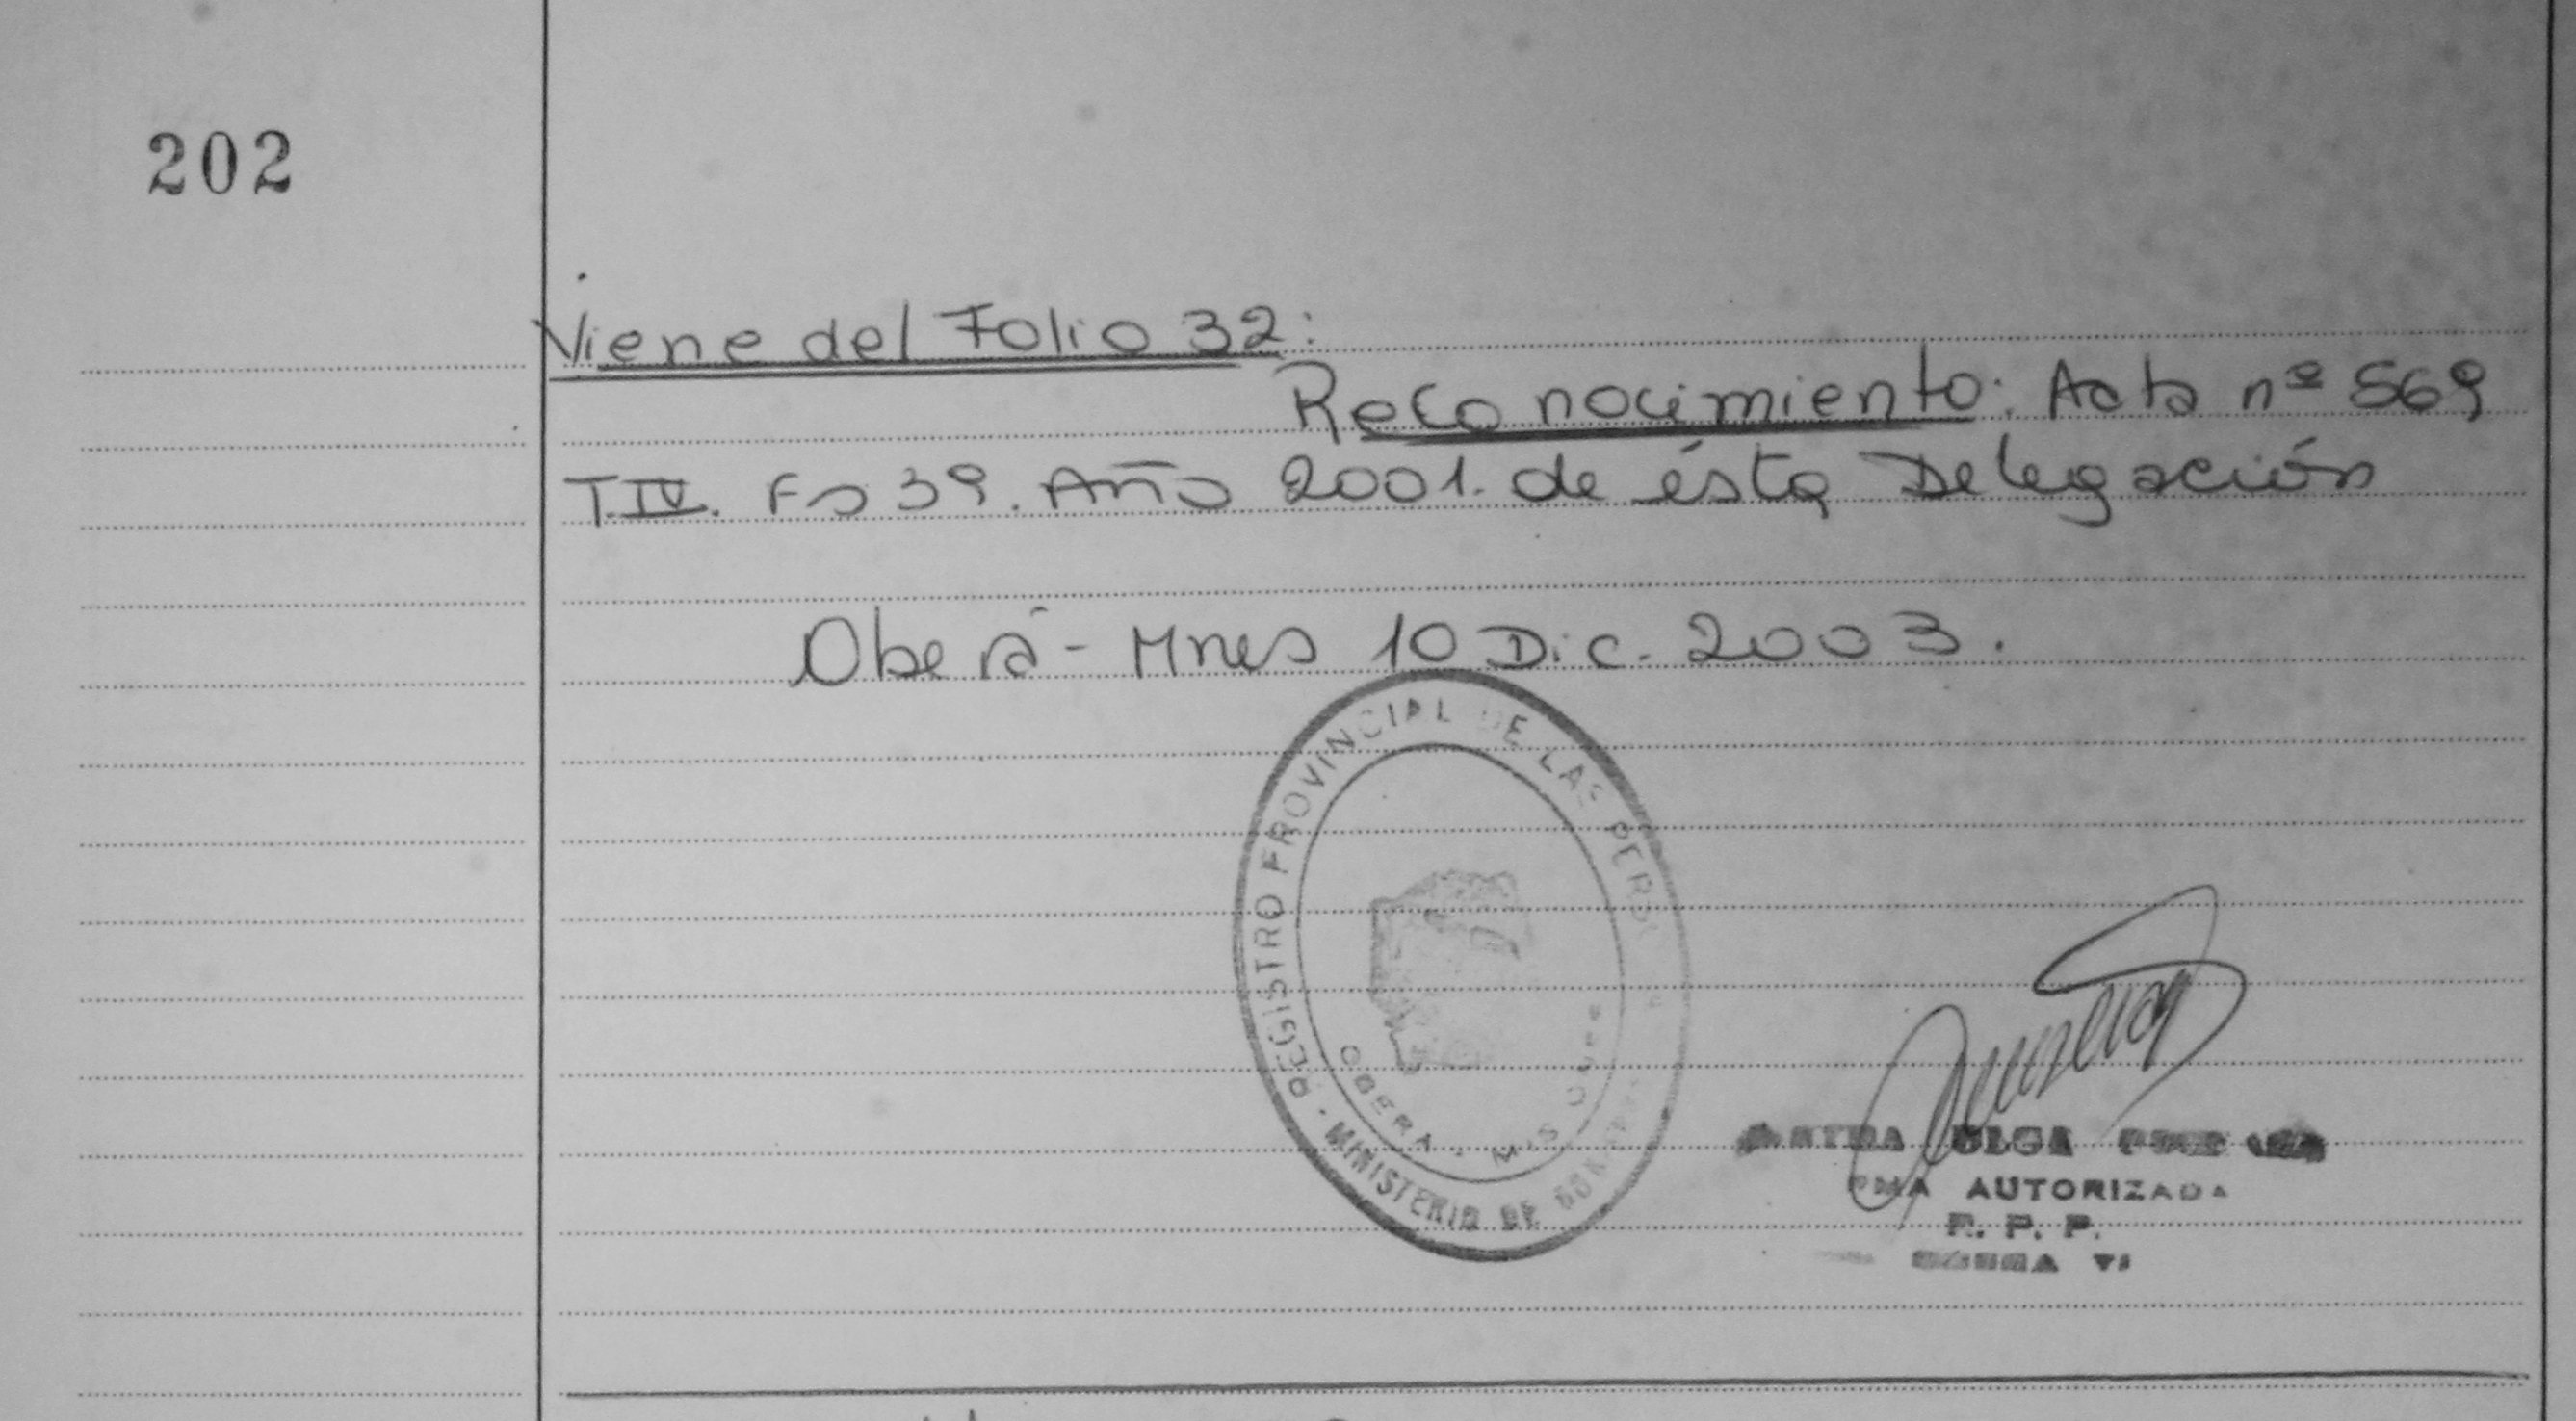 202
Viene del Folio 32:
Reconocimiento: Acta nº 569
T.IV. Fo 39. Año 2001. de ésta Delegación
Oberá - Mnes 10 Dic. 2003.
REGISTRO PROVINCIAL DE LAS
MINISTERIO DE
OBERA
OLGA
AUTORIZADA